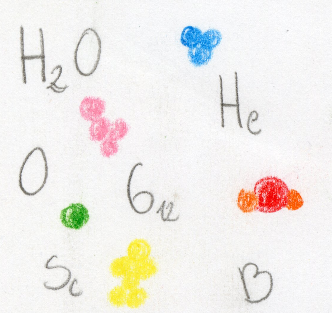 H₂O
He
O
6₁₂
Sc
B